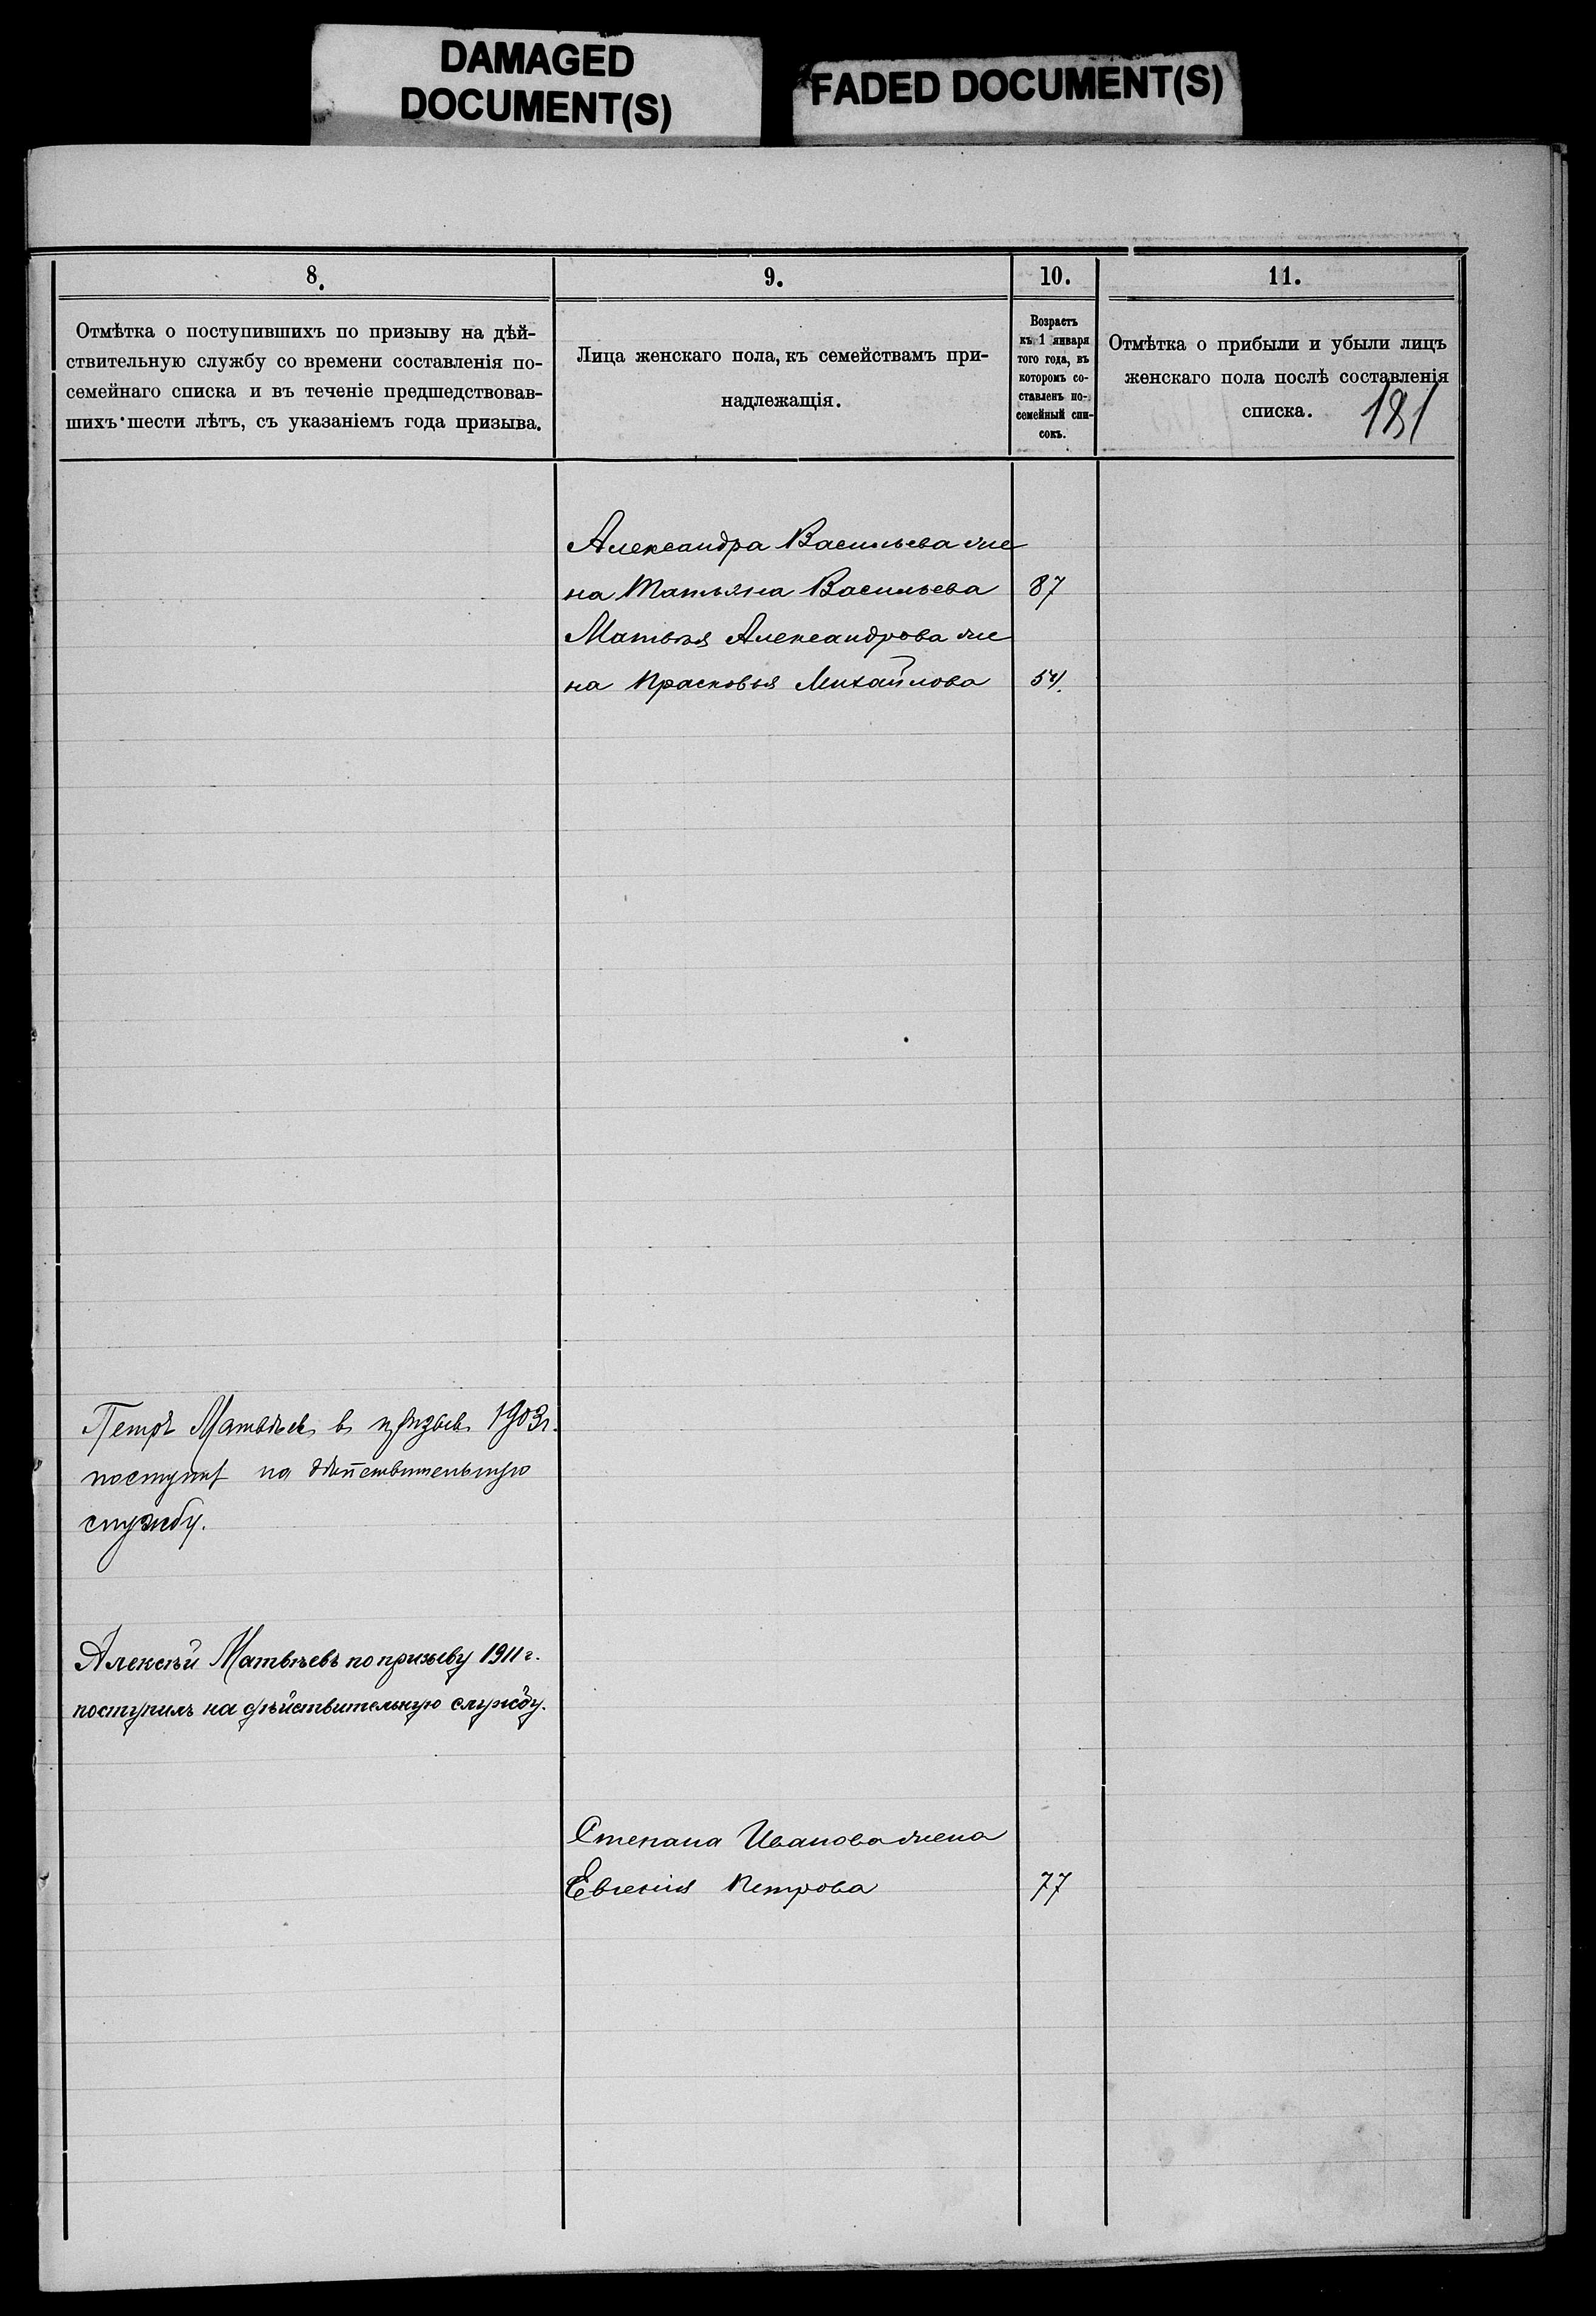 DAMAGED
DOCUMENT(S)
FADED DOCUMENT(S)
8.
Отмѣтка о поступившихъ по призыву на дѣй-
ствительную службу со времени составленія по-
семейнаго списка и въ теченіе предшедствовав-
шихъ шести лѣтъ, съ указаніемъ года призыва.
9.
Лица женскаго пола, къ семействамъ при-
надлежащія.
10.
Возрастъ
къ 1 января
того года, въ
которомъ со-
ставленъ по-
семейный спи-
сокъ.
11.
Отмѣтка о прибыли и убыли лицъ
женскаго пола послѣ составленія
списка.
181
Александра Васильева же
на Татьяна Васильева 87
Матвѣя Александрова же
на Прасковья Михайлова 54.
Петръ Матвѣевъ въ призывъ 1903 г.
поступ на дѣйствительную
службу.
Алексѣй Матвѣевъ по призыву 1911 г.
поступилъ на дѣйствительную службу.
Степана Иванова жена
Евгенія Петрова 77